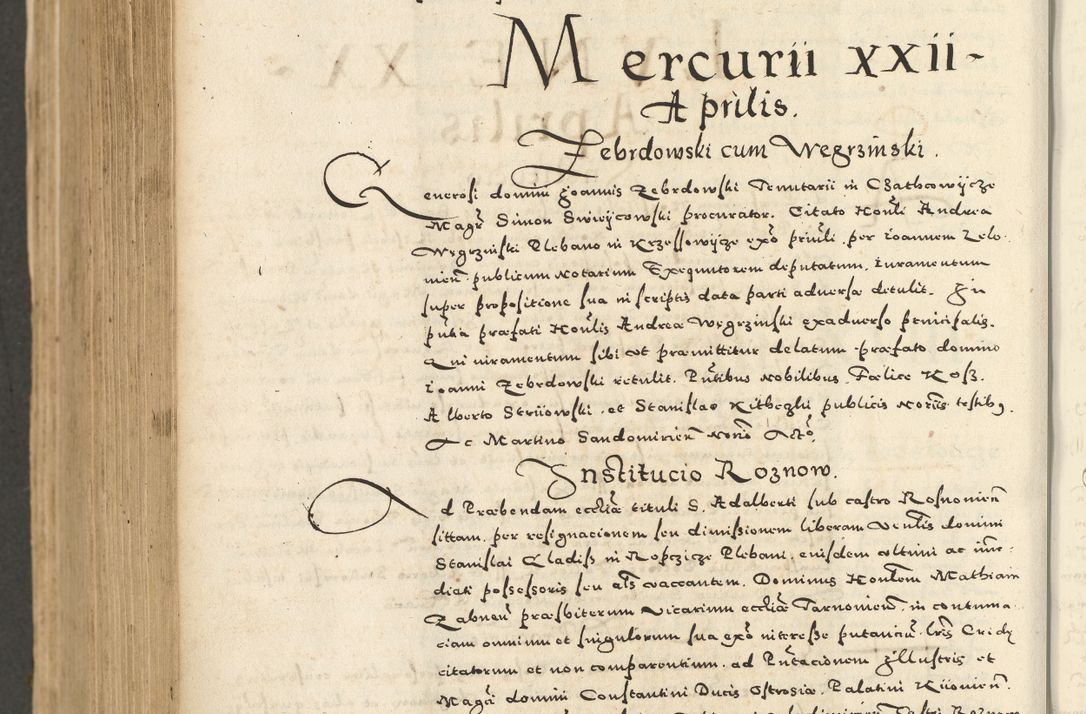 Mercurii xxii
Aprilis.
Zebrdowski cum Wegrzinski.
Generosi domini Joannis Zebrdowski Tenutarii in Czathcowycze
Magr Simon Swieycowski procurator. Citato Honli Andrea
Wegrzinski Plebano in Krzessowycze exo priuli per ioannem Zelo
nien publicum Notarium Exequutorem deputatum. iuramentum
super propositione sua in scriptis data parti aduersæ detulit. In
pntia præfati Honlis Andreæ Wegrzinski exaduerso
Qui iuramentum sibi vt præmittitur delatum præfato domino
ioanni Zebrdowski retulit. Pntibus Nobilibus Fælice Kosz.
Alberto Striiowski et Stanislao Kitheghi publicis Noriis testibq.
Ac Martino Sandomirien Norio Acto
Institucio Roznow.
Ad Præbendam eccliæ tituli S. Adalberti sub castro Rosnonien
sittam. per resignacionem seu dimissionem liberam Venlis domini
Stanislai Gladisz in Ropczicze Plebani. eiusdem vltimi ac ime
diati possessoris seu als vaccantem. Dominus Honlem Mathiam
Zabnen præsbiterum Vicarium eccliæ Tarnouien. in contuma
ciam omnium et singulorum sua exo interesse putanciu. lris Cridæ
citatorum et non comparentium. ad Pntacionem Illustris et
Magci domini Constantini Ducis Ostrosiæ. Palatini Kiiouien.